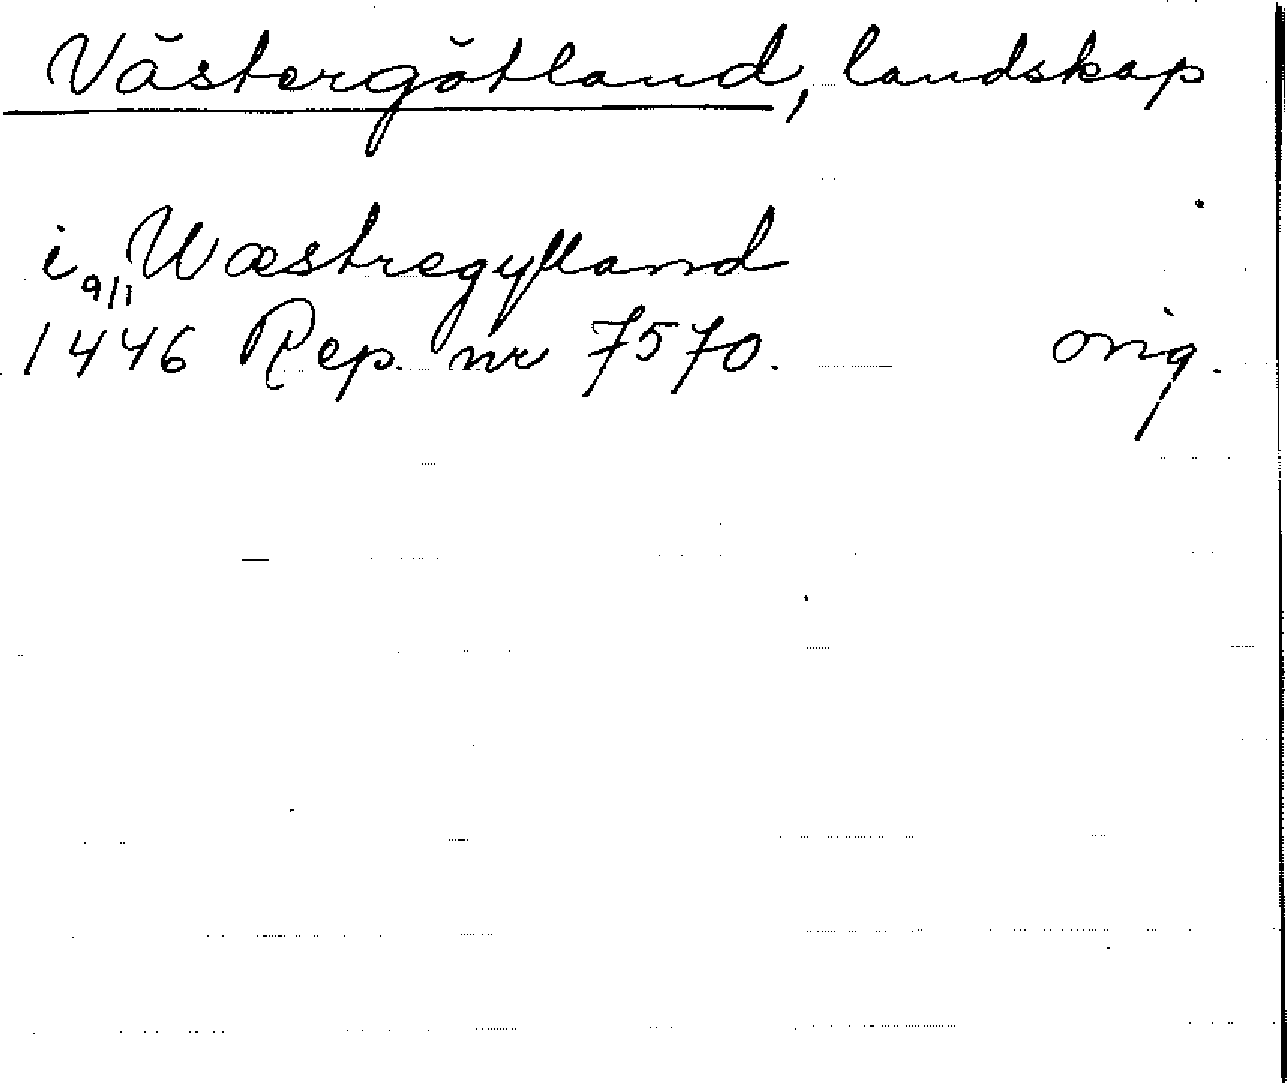 Västergötland, landskap
i Wæstregylland
9/1
1446 Rep. nr 7570. orig.